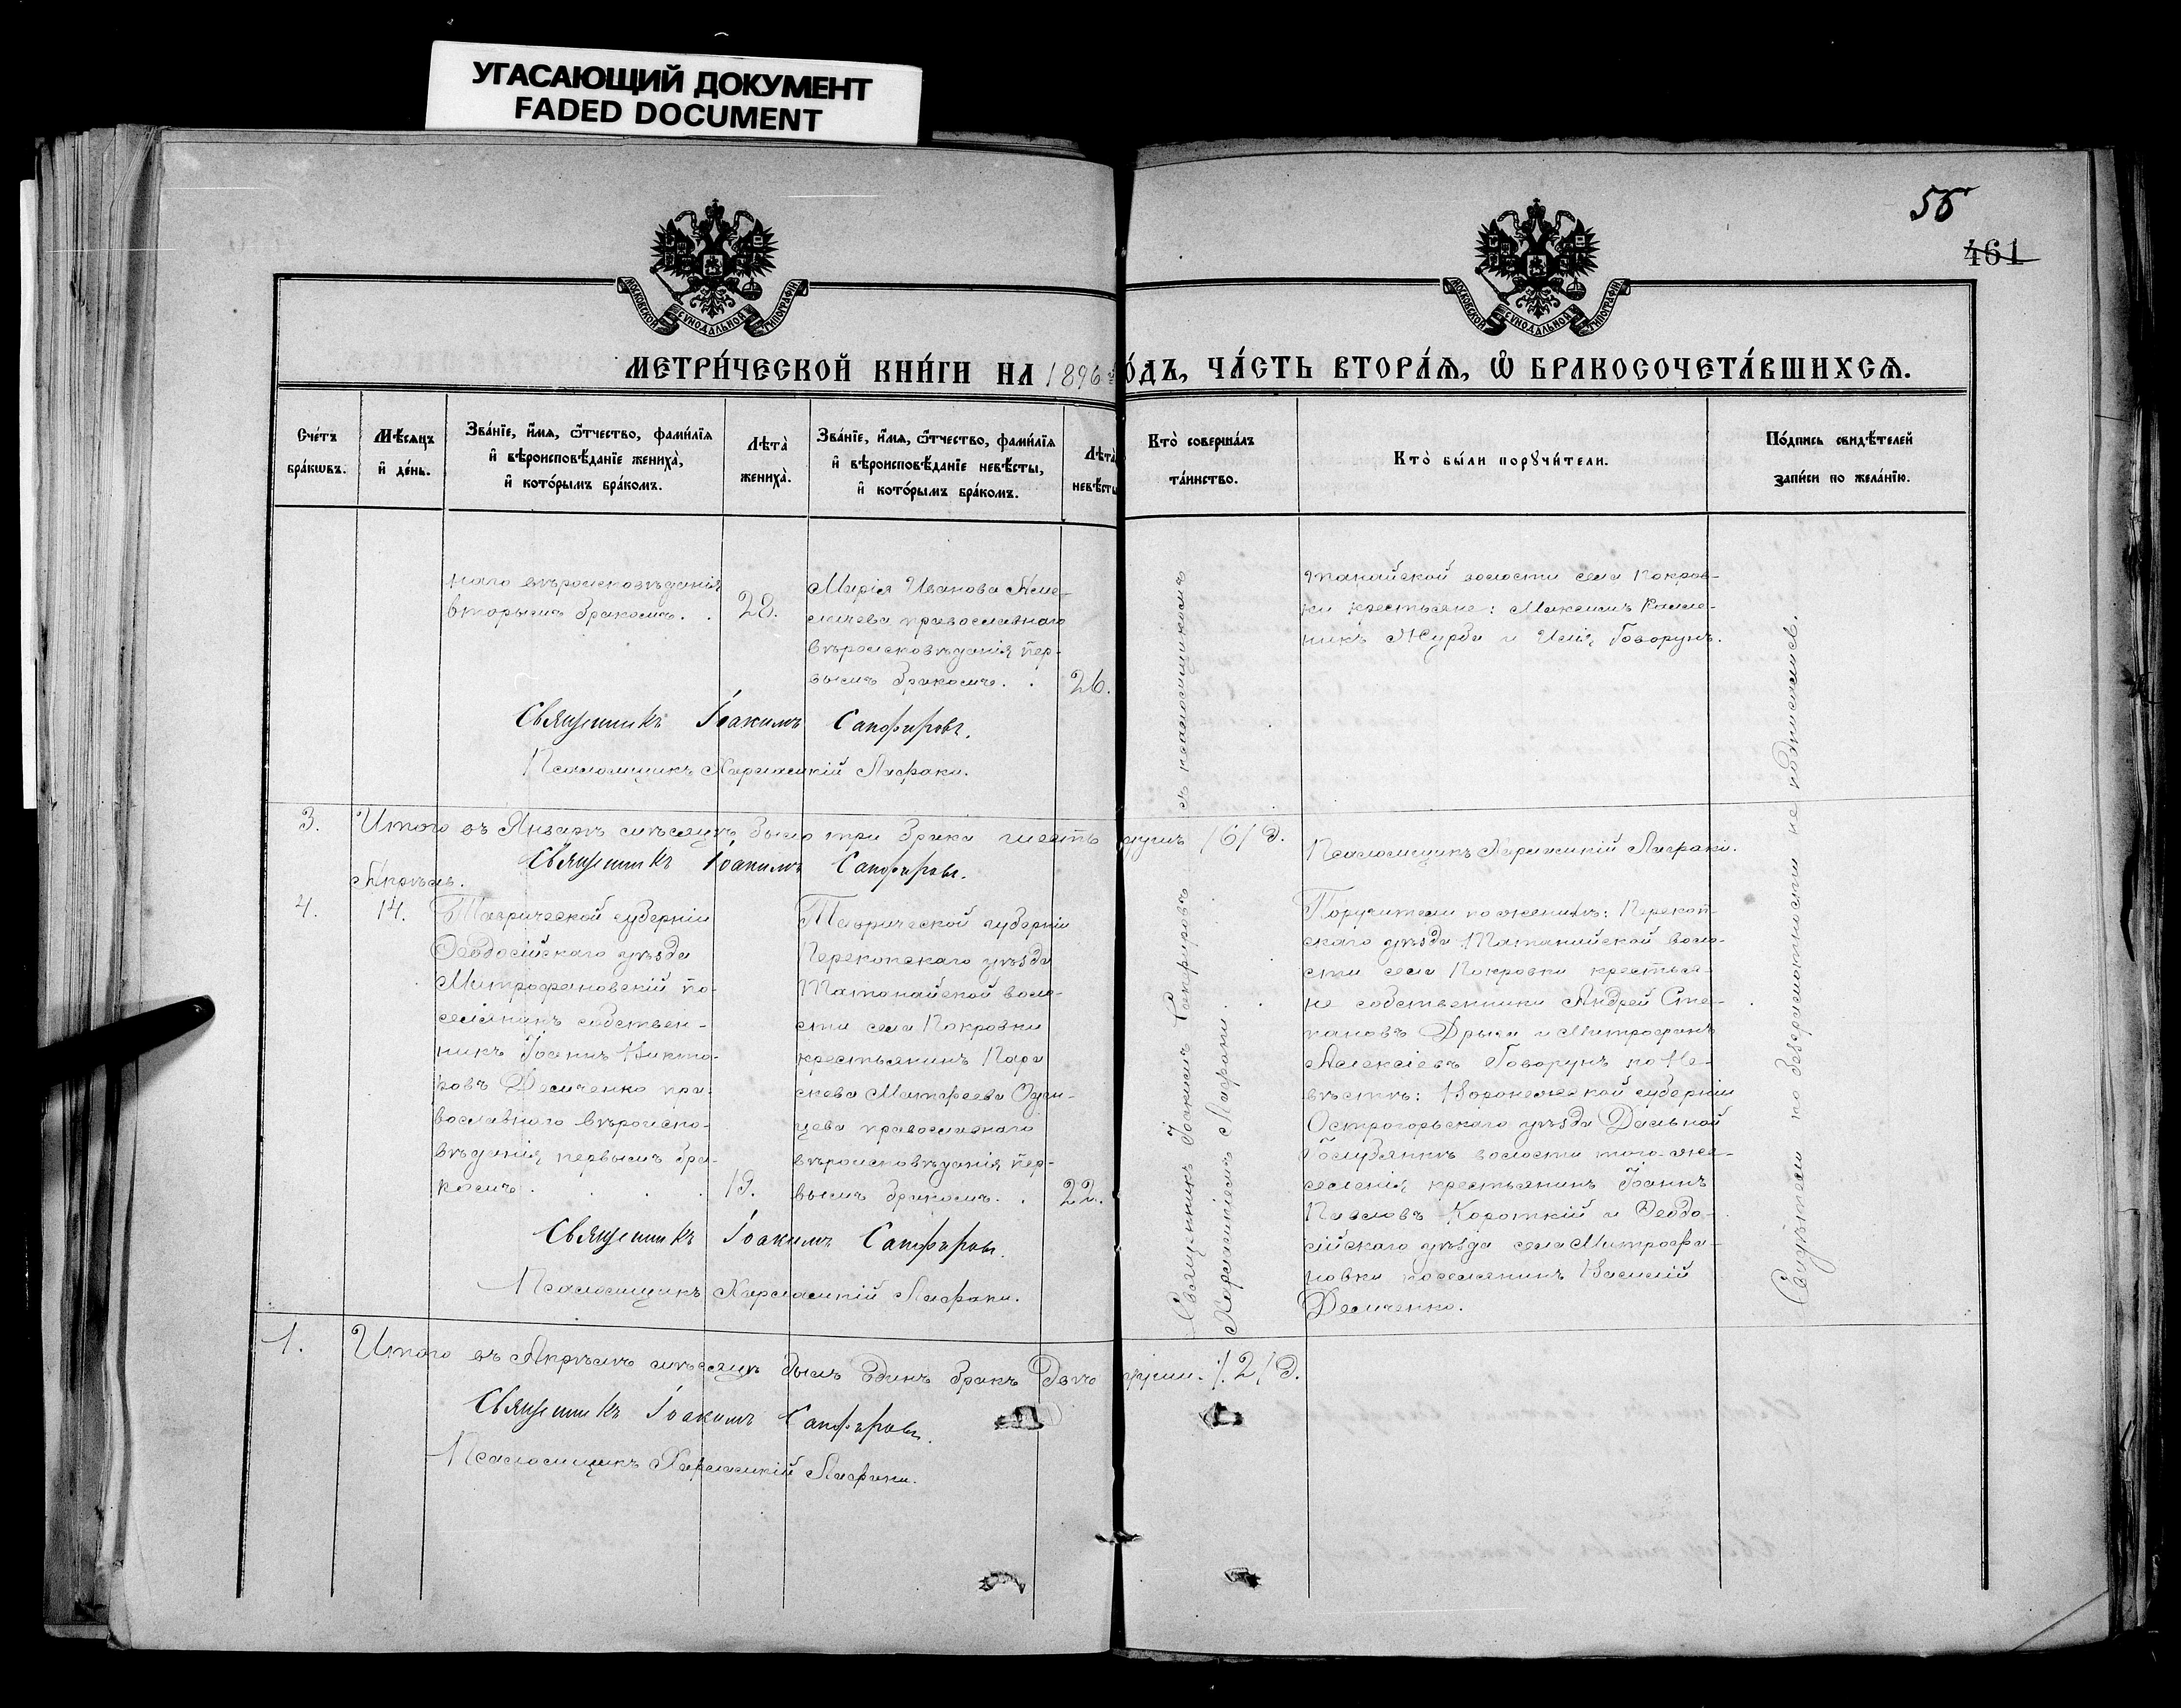 УГАСАЮЩИЙ ДОКУМЕНТ
FADED DOCUMENT
55
461
МОСКОВСКОЙ СѴНОДАЛЬНОЙ ТИПОГРАФІИ
МОСКОВСКОЙ СѴНОДАЛЬНОЙ ТИПОГРАФІИ
МЕТРИ́ЧЕСКОЙ КНИ́ГИ НА 1896 ГО́ДЪ, ЧА́СТЬ ВТОРА́Ѧ, Ѽ БРАКОСОЧЕТА́ВШИХСѦ.
Сче́тъ
бра́кѡвъ.
Мѣ́сѧцъ
и҆ де́нь.
Зва́нїе, и҆́мѧ, ѻ҆́тчество, фами́лїѧ
и҆ вѣроисповѣ́данїе жениха̀,
и҆ кото́рымъ бра́комъ.
Лѣта̀
жениха̀.
Зва́нїе, и҆́мѧ, ѻ҆́тчество, фами́лїѧ
и҆ вѣроисповѣ́данїе невѣ́сты,
и҆ кото́рымъ бра́комъ.
Лѣта̀
невѣ́сты
Кто̀ соверша́лъ
та́инство.
Кто̀ бы́ли порꙋчи́тели.
По́дпись свидѣ́телей
за́писи по жела́нїю.
наго вѣроисповѣданія
вторымъ бракомъ. .
28.
Марія Иванова Аме-
личева православнаго
вѣроисповѣданія пер-
вымъ бракомъ. .
26.
тanaйской волости села Покров-
ки крестьяне: Максимъ Калле-
никъ Журба и Илія Говорунъ.
Священникъ Іоакимъ Сапфировъ.
Псаломщикъ Харлампій Лафаки.
3. Итого въ Январѣ мѣсяцѣ было три брака шесть душъ /6/ д.
Священникъ Іоакимъ Сапфировъ.
Псаломщикъ Харлампій Лафаки.
Апрѣль.
4.
14.
Таврической губерніи
Ѳеодосійскаго уѣзда
Митрофановскій по-
селянинъ собствен-
никъ Іоаннъ Викто-
ровъ Демченко пра-
вославнаго вѣроиспо-
вѣданія первымъ бра-
комъ . . . .
19.
Таврической губерніи
Перекопскаго уѣзда
Татанайской воло-
сти села Покровки
крестьянинъ Пара
скева Матѳеева Один-
цева православнаго
вѣроисповѣданія пер-
вымъ бракомъ. .
22.
Священникъ Іоакимъ Сапфировъ съ псаломщикомъ
Харлампіемъ Лафаки.
Поручители по женихѣ: Перекоп-
скаго уѣзда Татанайской воло-
сти села Покровки крестья-
не собственники Андрей Сте-
пановъ Дрыга и Митрофанъ
Алексіевъ Говорунъ по Не-
вѣстѣ: Воронежской губерніи
Острогорьскаго уѣзда Дальной
Голубянкѣ волости того-же-
селенія крестьянинъ Іоаннъ
Павловъ Короткій и Ѳеодо-
сійскаго уѣзда села Митрофа-
новки поселянинъ Василій
Демченко.
Свидѣтели по безграмотности не подписались.
Священникъ Іоакимъ Сапфировъ.
Псаломщикъ Харлампій Лафаки.
1. Итого въ Апрѣлѣ мѣсяцѣ былъ одинъ бракъ Двѣ души. /2/ д.
Священникъ Іоакимъ Сапфировъ.
Псаломщикъ Харлампій Лафаки.